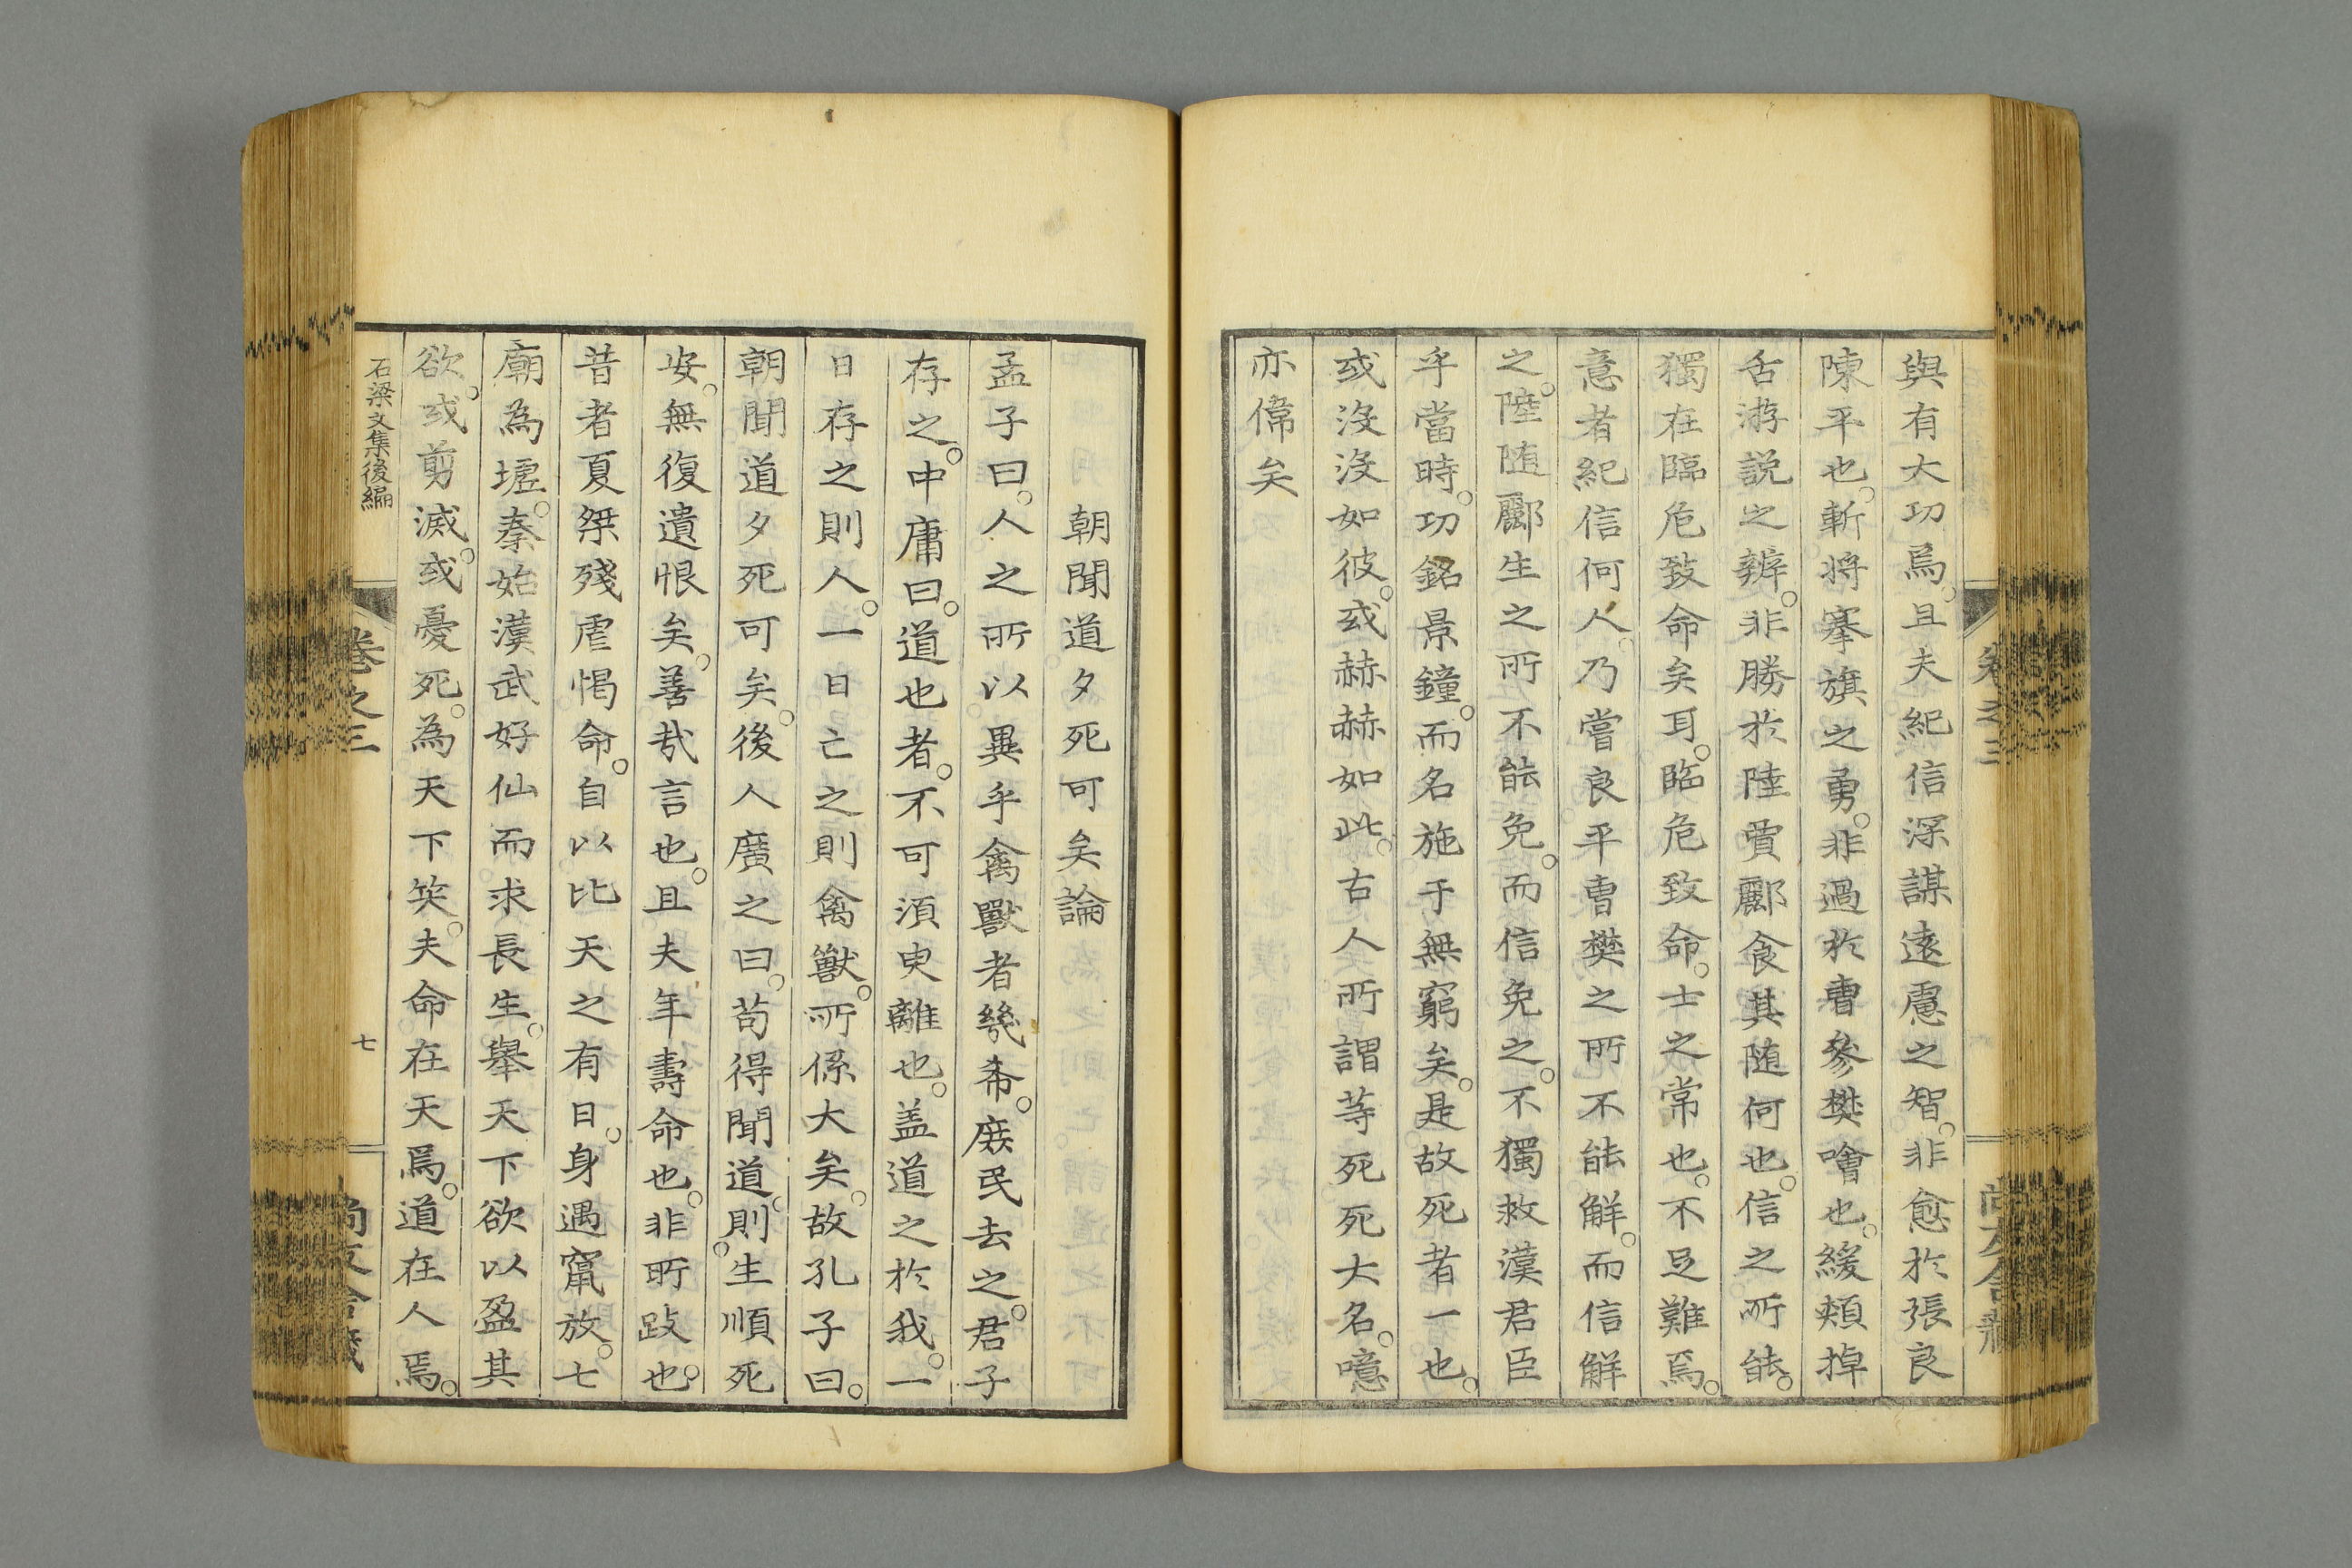 與有大功焉。且夫紀信深謀遠慮之智。非愈於張良
陳平也。斬將搴旗之勇。非過於曹參樊噲也。緩頰掉
舌游説之辨。非勝於陸賈酈食其随何也。信之所能。
獨在臨危致命矣耳。臨危致命。士之常也。不足難焉。
意者紀信何人。乃嘗良平曹樊之所不能解。而信解
之。陸随酈生之所不能免。而信免之。不獨救漢君臣
乎當時。功銘景鐘。而名施于無窮矣。是故死者一也。
或沒沒如彼。或赫赫如此。古人所謂等死死大名。噫
亦偉矣
朝聞道夕死可矣論
孟子曰。人之所以異乎禽獸者幾希。庶民去之。君子
存之。中庸曰。道也者。不可須臾離也。盖道之於我。一
日存之則人。一日亡之則禽獸。所係大矣。故孔子曰。
朝聞道夕死可矣。後人廣之曰。苟得聞道。則。生順死
安。無復遺恨矣。善哉言也。且夫年壽命也。非所跂也。
昔者夏桀殘虐愒命。自以比天之有日。身遇竄放。七
廟為墟。秦始漢武好仙而求長生。舉天下欲以盈其
欲。或剪滅。或憂死。為天下笑。夫命在天焉。道在人焉。
石梁文集後編
卷之三
七